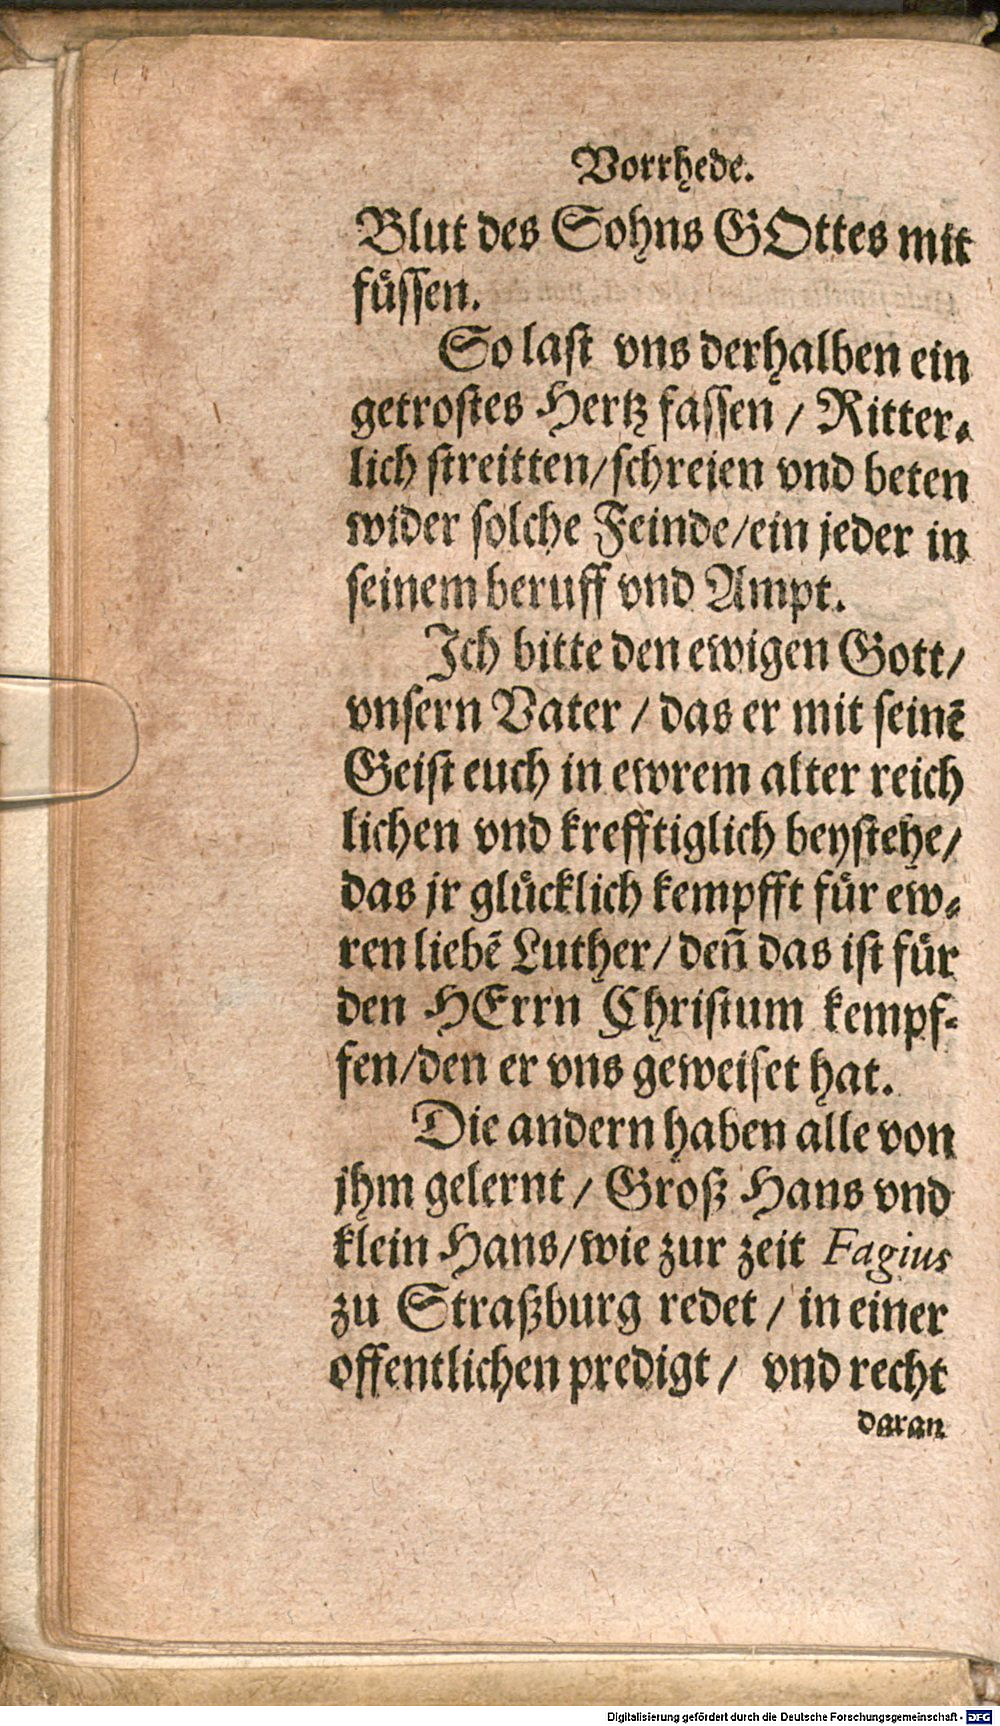 Vorrhede.
Blut des Sohns GOttes mit
fuͤssen.
So last vns derhalben ein
getrostes Hertz fassen / Ritter⸗
lich streitten/schreien vnd beten
wider solche Feinde/ein jeder in
seinem beruff vnd Ampt.
Ich bitte den ewigen Gott/
vnsern Vater / das er mit seinẽ
Geist euch in ewrem alter reich
lichen vnd krefftiglich beystehe/
das jr gluͤcklich kempfft fuͤr ew⸗
ren liebẽ Luther/ deñ das ist fuͤr
den HErrn Christum kempf⸗
fen/den er vns geweiset hat.
Die andern haben alle von
jhm gelernt / Groß Hans vnd
klein Hans/wie zur zeit Fagius
zu Straßburg redet / in einer
offentlichen predigt / vnd recht
daran
Digitalisierung gefördert durch die Deutsche Forschungsgemeinschaft - DFG